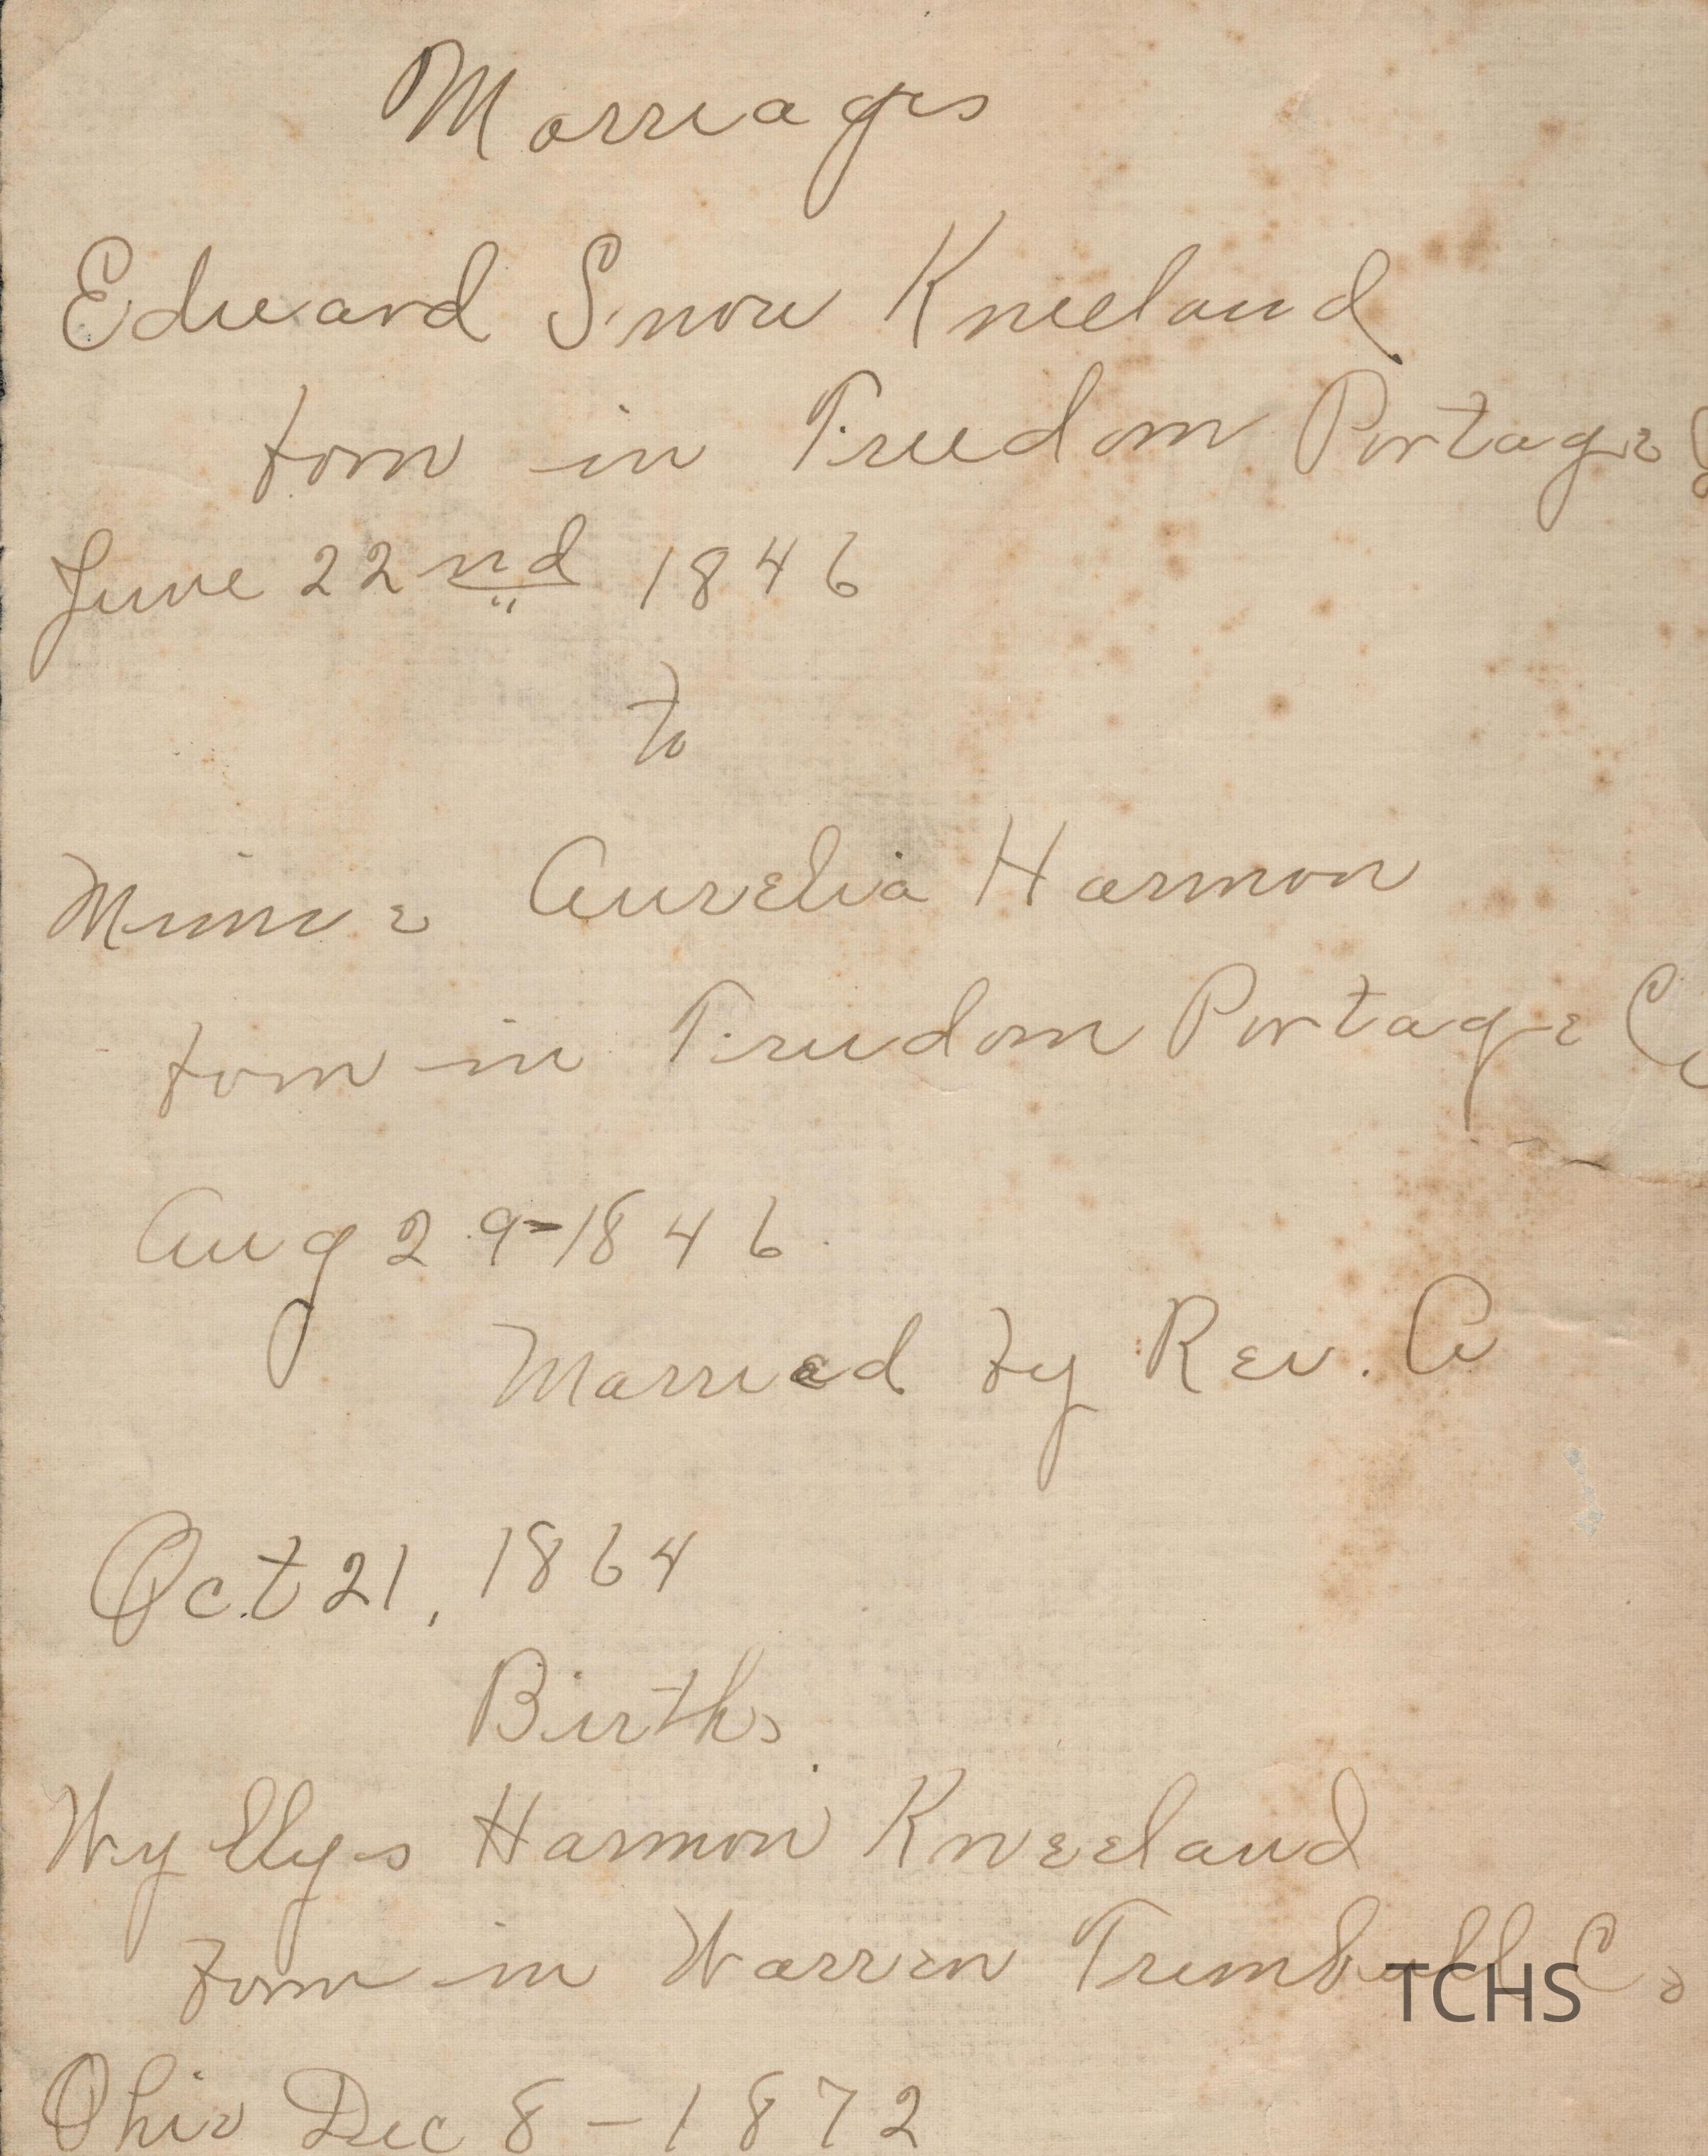 Marriages
Edward Snow Kneeland
born in Freedom Portage
June 22nd 1846
to
Minnie Aurelia Harmon
born in Freedom Portage Co
Aug 29-1846
Married by Rev. A
Oct 21, 1864
Births
Wyllys Harmon Kneeland
born in Warren Trumbull Co
TCHS
Ohio Dec 8-1872